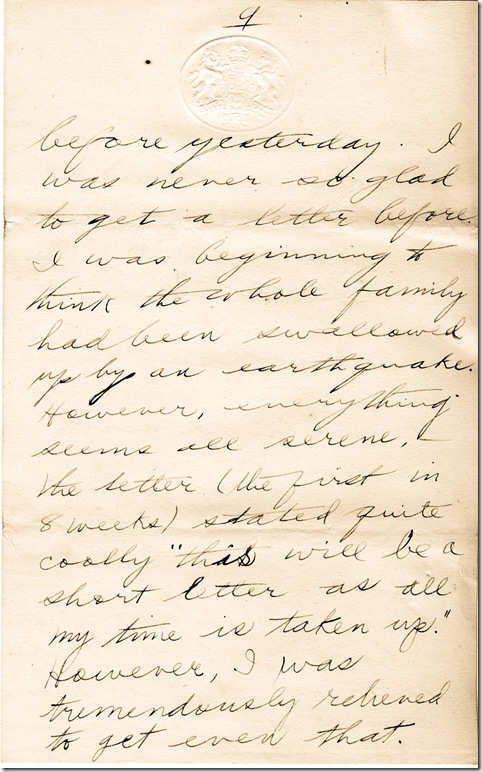 9
before yesterday. I
was never so glad
to get a letter before.
I was beginning to
think the whole family
had been swallowed
up by an earthquake.
However, everything
seems all serene, –
the letter (the first in
8 weeks) stated quite
coolly "this will be a
short letter as all
my time is taken up."
However, I was
tremendously relieved
to get even that.